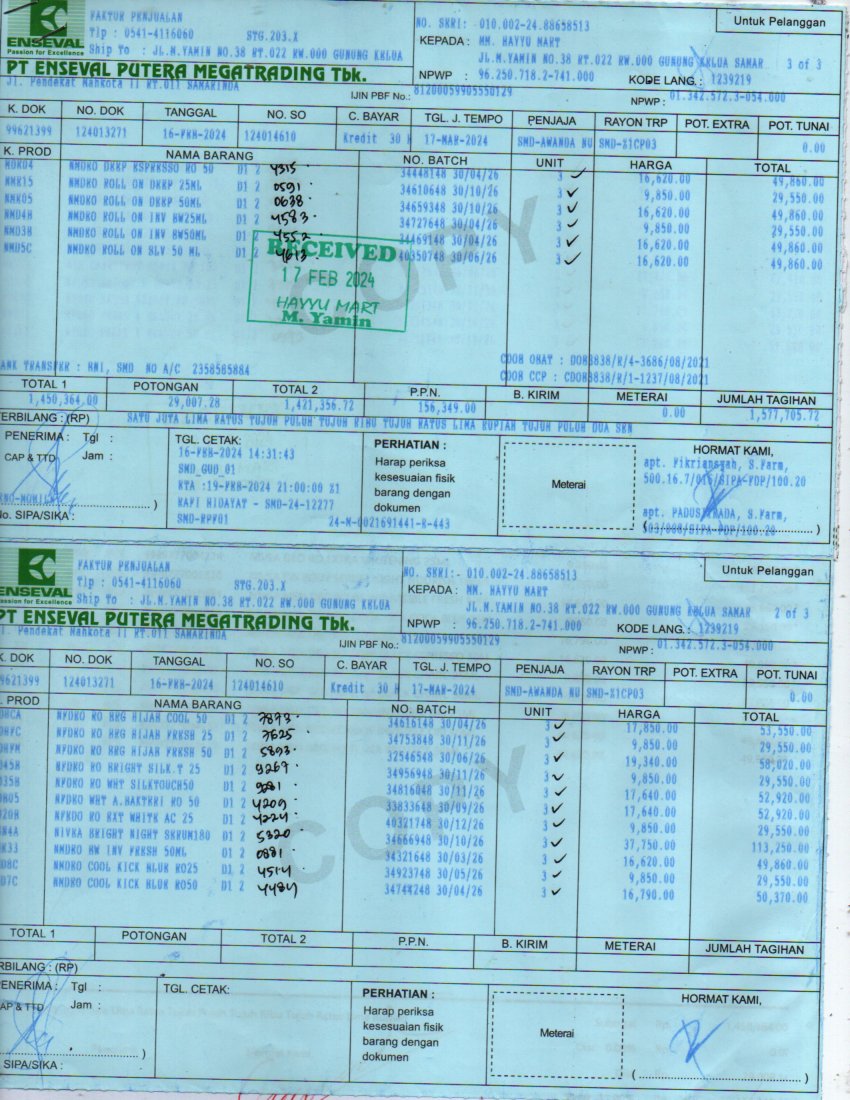 FAKTUR PENJUALAN
Tlp : 0541-4116060 STG.203.X
Ship To : JL.M.YAMIN NO.38 RT.022 RW.000 GUNUNG KELUA
ENSEVAL
Passion for Excellence
PT ENSEVAL PUTERA MEGATRADING Tbk.
Jl. Pendekat Mahkota II RT.011 SAMARINDA
NO. SERI:- 010.002-24.88658513
Untuk Pelanggan
KEPADA : MM. HAYYU MART
JL.M.YAMIN NO.38 RT.022 RW.000 GUNUNG KELUA SAMAR 3 of 3
NPWP : 96.250.718.2-741.000 KODE LANG.: 1239219
IJIN PBF No.: 81200059905550129 NPWP : 01.342.572.3-054.000
K. DOK NO. DOK TANGGAL NO. SO C. BAYAR TGL. J. TEMPO PENJAJA RAYON TRP POT. EXTRA POT. TUNAI
99621399 124013271 16-FEB-2024 124014610 Kredit 30 H 17-MAR-2024 SMD-AWANDA NU SMD-X1CP03 0.00
K. PROD NAMA BARANG NO. BATCH UNIT HARGA TOTAL
NMDKO DEEP ESPRESSO RO 50 D1 2 4315 34448148 30/04/26 3 16,620.00 49,860.00
NMK15 NMDKO ROLL ON DEEP 25ML D1 2 0591 34610648 30/10/26 3 9,850.00 29,550.00
NMK05 NMDKO ROLL ON DEEP 50ML D1 2 0638 34659348 30/10/26 3 16,620.00 49,860.00
NMD4B NMDKO ROLL ON INV BW25ML D1 2 4583 34727648 30/04/26 3 9,850.00 29,550.00
NMD3B NMDKO ROLL ON INV BW50ML D1 2 4552 34469148 30/04/26 3 16,620.00 49,860.00
NMD5C NMDKO ROLL ON SLV 50 ML D1 2 4613 40350748 30/06/26 3 16,620.00 49,860.00
RECEIVED
17 FEB 2024
HAYYU MART
M. Yamin
COPY
CDOB OBAT : DOB8838/R/4-3686/08/2021
BANK TRANSFER : BNI, SMD NO A/C 2358585884 CDOB CCP : CDOB8838/R/1-1237/08/2021
TOTAL 1 POTONGAN TOTAL 2 P.P.N. B. KIRIM METERAI JUMLAH TAGIHAN
1,450,364.00 29,007.28 1,421,356.72 156,349.00 0.00 1,577,705.72
TERBILANG : (RP) SATU JUTA LIMA RATUS TUJUH PULUH TUJUH RIBU TUJUH RATUS LIMA RUPIAH TUJUH PULUH DUA SEN
PENERIMA : Tgl :
CAP & TTD Jam :
No. SIPA/SIKA :
TGL. CETAK:
16-FEB-2024 14:31:43
SMD_GUD_01
RTA :19-FEB-2024 21:00:00 X1
RAFI HIDAYAT - SMD-24-12277
SMD-RPF01 24-N-0021691441-R-443
PERHATIAN :
Harap periksa
kesesuaian fisik
barang dengan
dokumen
Meterai
HORMAT KAMI,
apt. Fikriansyah, S.Farm,
apt.
FAKTUR PENJUALAN
Tlp : 0541-4116060 STG.203.X
Ship To : JL.M.YAMIN NO.38 RT.022 RW.000 GUNUNG KELUA
ENSEVAL
Passion for Excellence
PT ENSEVAL PUTERA MEGATRADING Tbk.
Jl. Pendekat Mahkota II RT.011 SAMARINDA
NO. SERI:- 010.002-24.88658513
Untuk Pelanggan
KEPADA : MM. HAYYU MART
JL.M.YAMIN NO.38 RT.022 RW.000 GUNUNG KELUA SAMAR 2 of 3
NPWP : 96.250.718.2-741.000 KODE LANG.: 1239219
IJIN PBF No.: 81200059905550129 NPWP : 01.342.572.3-054.000
K. DOK NO. DOK TANGGAL NO. SO C. BAYAR TGL. J. TEMPO PENJAJA RAYON TRP POT. EXTRA POT. TUNAI
9621399 124013271 16-FEB-2024 124014610 Kredit 30 H 17-MAR-2024 SMD-AWANDA NU SMD-X1CP03 0.00
K. PROD NAMA BARANG NO. BATCH UNIT HARGA TOTAL
NFDKO RO BRG HIJAB COOL 50 D1 2 7893 34616148 30/04/26 3 17,850.00 53,550.00
NFDKO RO BRG HIJAB FRESH 25 D1 2 7625 34753848 30/11/26 3 9,850.00 29,550.00
NFDKO RO BRG HIJAB FRESH 50 D1 2 5893 32546548 30/06/26 3 19,340.00 58,020.00
NFDKO RO BRIGHT SILK.T 25 D1 2 9267 34956948 30/11/26 3 9,850.00 29,550.00
NFDKO RO WHT SILKTOUCH50 D1 2 34816048 30/11/26 3 17,640.00 52,920.00
NFDKO WHT A.BAKTERI RO 50 D1 2 4209 33833648 30/09/26 3 17,640.00 52,920.00
NFKDO RO EXT WHITE AC 25 D1 2 4224 40321748 30/12/26 3 9,850.00 29,550.00
NIVEA BRIGHT NIGHT SERUM180 D1 2 5320 34666948 30/10/26 3 37,750.00 113,250.00
NMDKO BW INV FRESH 50ML D1 2 0881 34321648 30/03/26 3 16,620.00 49,860.00
NMDKO COOL KICK BLUE RO25 D1 2 4514 34923748 30/05/26 3 9,850.00 29,550.00
NMDKO COOL KICK BLUE RO50 D1 2 4484 34744248 30/04/26 3 16,790.00 50,370.00
COPY
TOTAL 1 POTONGAN TOTAL 2 P.P.N. B. KIRIM METERAI JUMLAH TAGIHAN
TERBILANG : (RP)
PENERIMA : Tgl :
CAP & TTD Jam :
SIPA/SIKA :
TGL. CETAK:
PERHATIAN :
Harap periksa
kesesuaian fisik
barang dengan
dokumen
Meterai
HORMAT KAMI,